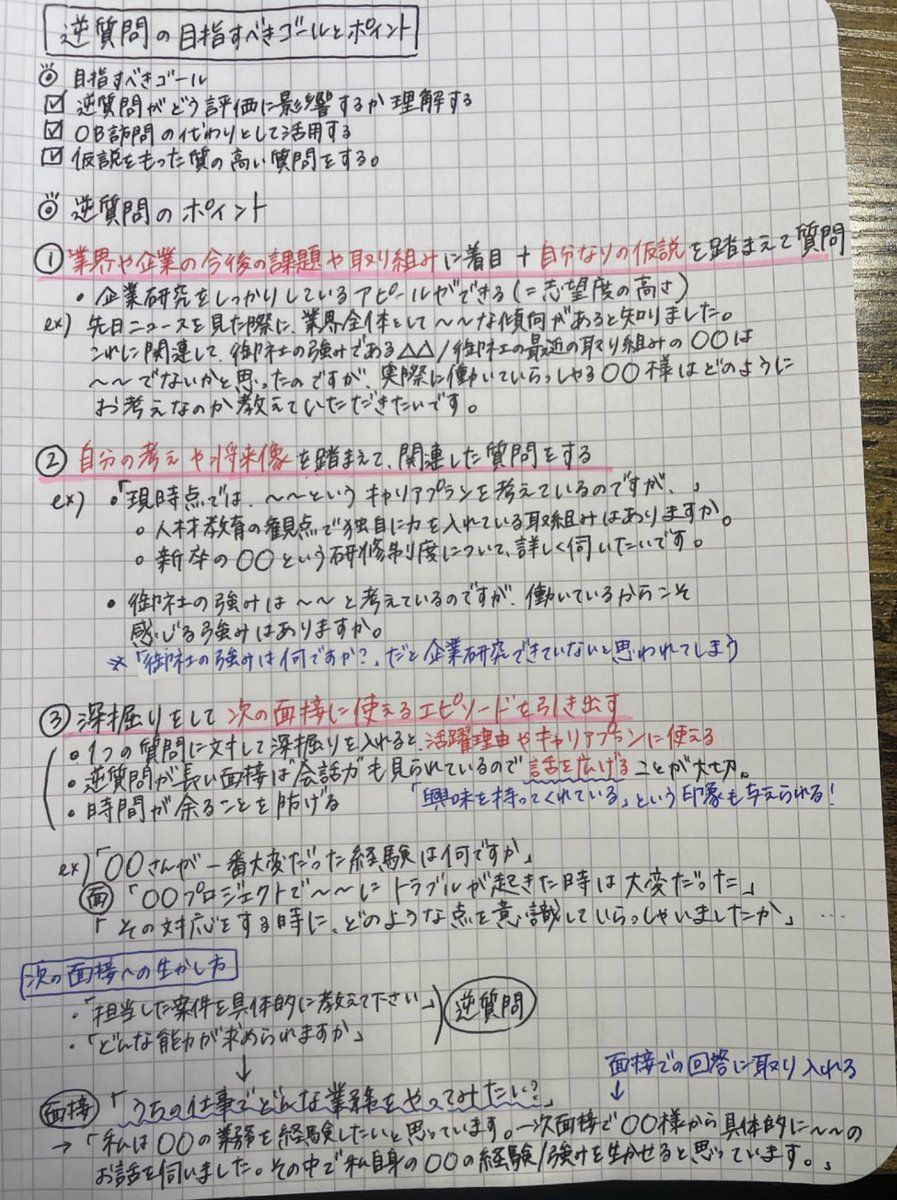 逆質問の目指すべきゴールとポイント
◎ 目指すべきゴール
☑ 逆質問がどう評価に影響するか理解する
☑ OB訪問の代わりとして活用する
☑ 仮説をもった質の高い質問をする。
◎ 逆質問のポイント
① 業界や企業の今後の課題や取り組みに着目 + 自分なりの仮説を踏まえて質問
・企業研究をしっかりしているアピールができる(=志望度の高さ)
ex) 先日ニュースを見た際に、業界全体として〜〜な傾向があると知りました。
これに関連して、御社の強みである△△/御社の最近の取り組みの〇〇は
〜〜でないかと思ったのですが、実際に働いていらっしゃる〇〇様はどのように
お考えなのか教えていただきたいです。
② 自分の考えや将来像を踏まえて、関連した質問をする
ex) ・「現時点では、〜〜というキャリアプランを考えているのですが、」
○ 人材教育の観点で独自に力を入れている取組みはありますか。
○ 新卒の〇〇という研修制度について、詳しく伺いたいです。
・御社の強みは〜〜と考えているのですが、働いているからこそ
感じる強みはありますか。
※「御社の強みは何ですか?」だと企業研究できていないと思われてしまう
③ 深掘りをして次の面接に使えるエピソードを引き出す
・1つの質問に対して深掘りを入れると、活躍理由やキャリアプランに使える
・逆質問が長い面接は会話力も見られているので話を広げることが大切。
・時間が余ることを防げる 「興味を持ってくれている」という印象も与えられる!
ex)「〇〇さんが一番大変だった経験は何ですか」
面「〇〇プロジェクトで〜〜にトラブルが起きた時は大変だった」
「その対応をする時に、どのような点を意識していらっしゃいましたか」…
次の面接への生かし方
・「担当した案件を具体的に教えて下さい」
・「どんな能力が求められますか」
逆質問
↓
面接での回答に取り入れる
↓
面接「うちの仕事でどんな業務をやってみたい?」
→「私は〇〇の業務を経験したいと思っています。一次面接で〇〇様から具体的に〜〜の
お話を伺いました。その中で私自身の〇〇の経験/強みを生かせると思っています。」